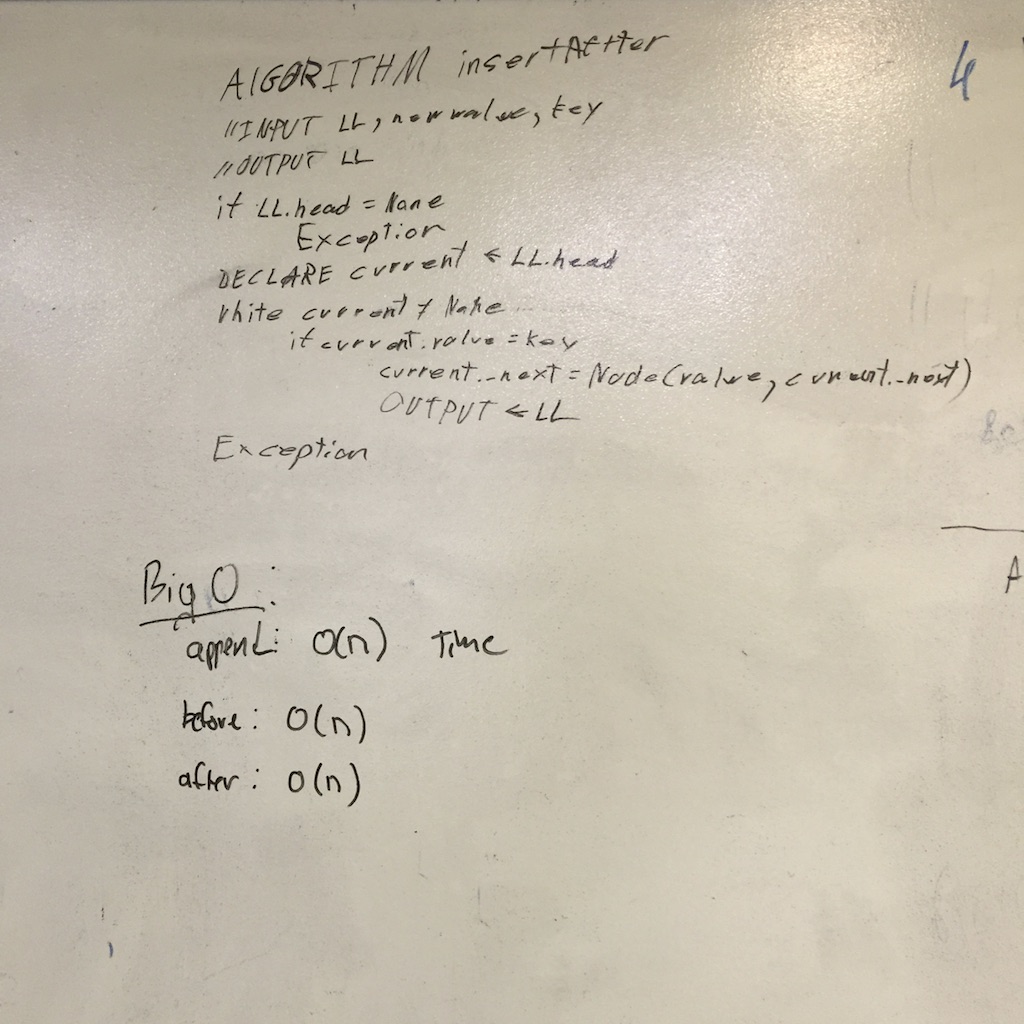 ALGORITHM insertAfter
4
//INPUT LL, newvalue, key
//OUTPUT LL
if LL.head = None
Exception
DECLARE current ← LL.head
While current ≠ None
if current.value = key
current._next = Node(value, current._next)
OUTPUT ← LL
Exception
A
Big O:
append: O(n) Time
before: O(n)
after: O(n)